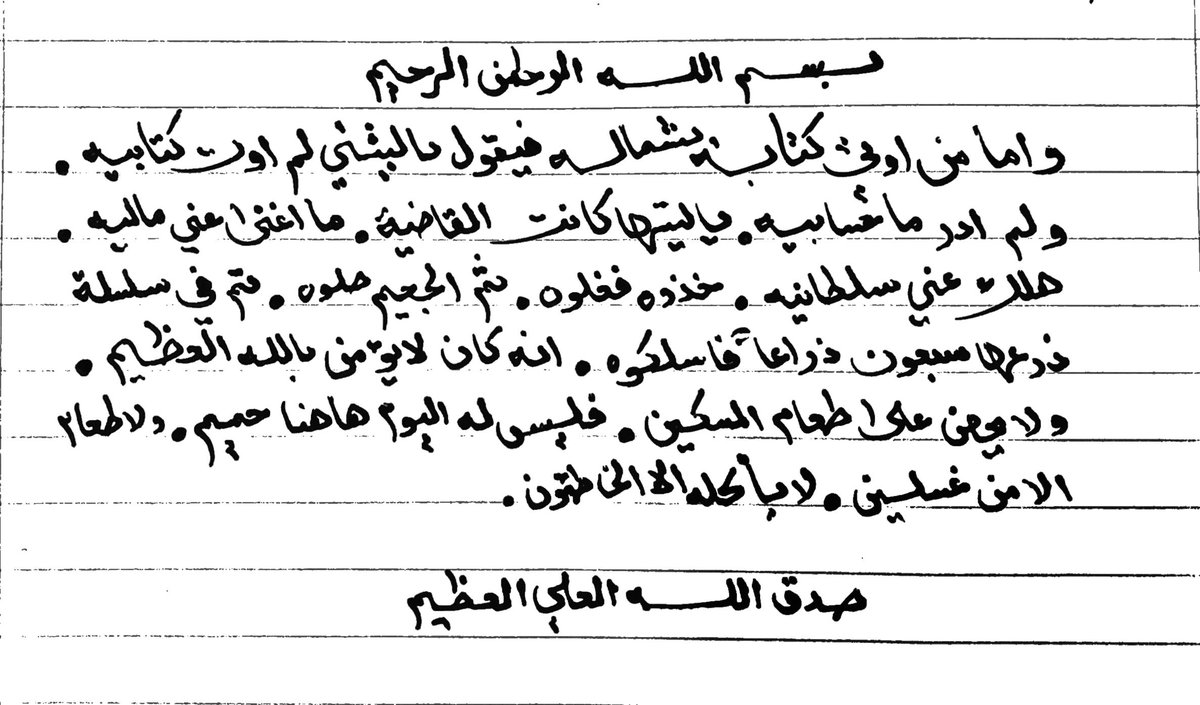 بسم الله الرحمن الرحيم
واما من اوتي كتابه بشماله فيقول ياليتني لم اوت كتابيه .
ولم ادر ما حسابيه . ياليتها كانت القاضية . ما اغنى عني ماليه .
هلك عني سلطانيه . خذوه فغلوه . ثم الجحيم صلوه . ثم في سلسلة
ذرعها سبعون ذراعا فاسلكوه . انه كان لايؤمن بالله العظيم .
ولا يحض على طعام المسكين . فليس له اليوم هاهنا حميم . ولا طعام
الا من غسلين . لا يأكله الا الخاطئون .
صدق الله العلي العظيم